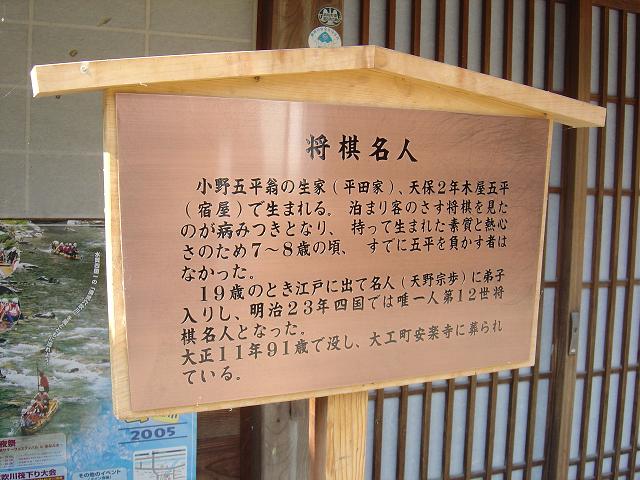 将棋名人
小野五平翁の生家（平田家）、天保２年木屋五平
（宿屋）で生まれる。泊まり客のさす将棋を見た
のが病みつきとなり、持って生まれた素質と熱心
さのため７～８歳の頃、すでに五平を負かす者は
なかった。
１９歳のとき江戸に出て名人（天野宗歩）に弟子
入りし、明治２３年四国では唯一人第１２世将
棋名人となった。
大正１１年９１歳で没し、大工町安楽寺に葬られ
ている。
2005
吹川筏下り大会
その他のイベント